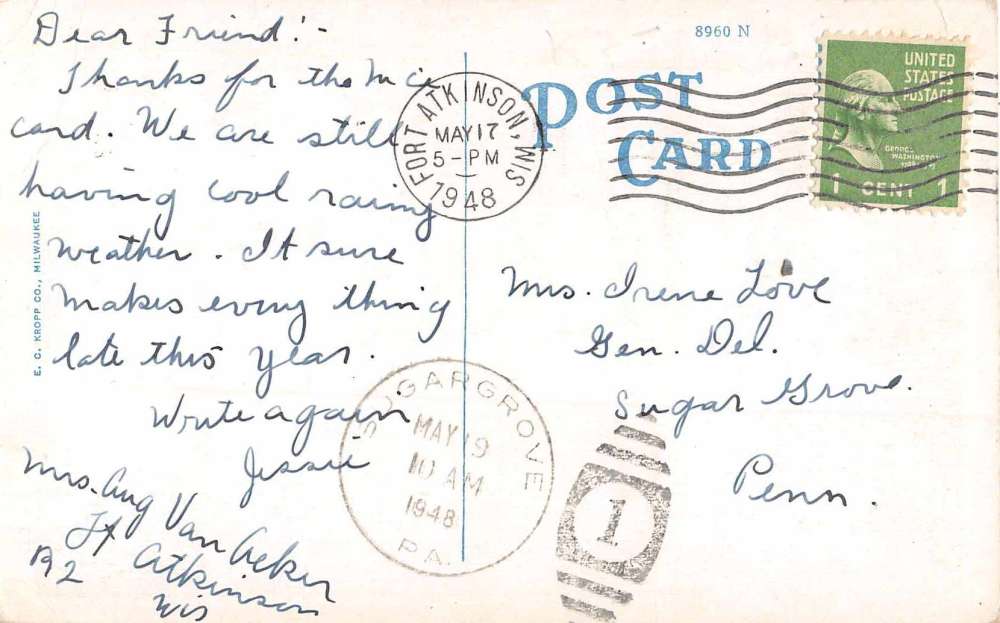 Dear Friend! -
Thanks for the nice
card. We are still
having cool rainy
weather. It sure
makes every thing
late this year.
Write again
Jessie
Mrs. Aug Van Acker
Ft Atkinson
R 2
Wis
E. C. KROPP CO., MILWAUKEE
8960 N
POST
CARD
FORT ATKINSON, WIS
MAY 17
5 - PM
1948
UNITED
STATES
POSTAGE
GEORGE
WASHINGTON
1 CENT 1
Mrs. Irene Love
Gen. Del.
Sugar Grove.
Penn.
SUGARGROVE
MAY 19
10 AM
1948
PA.
1